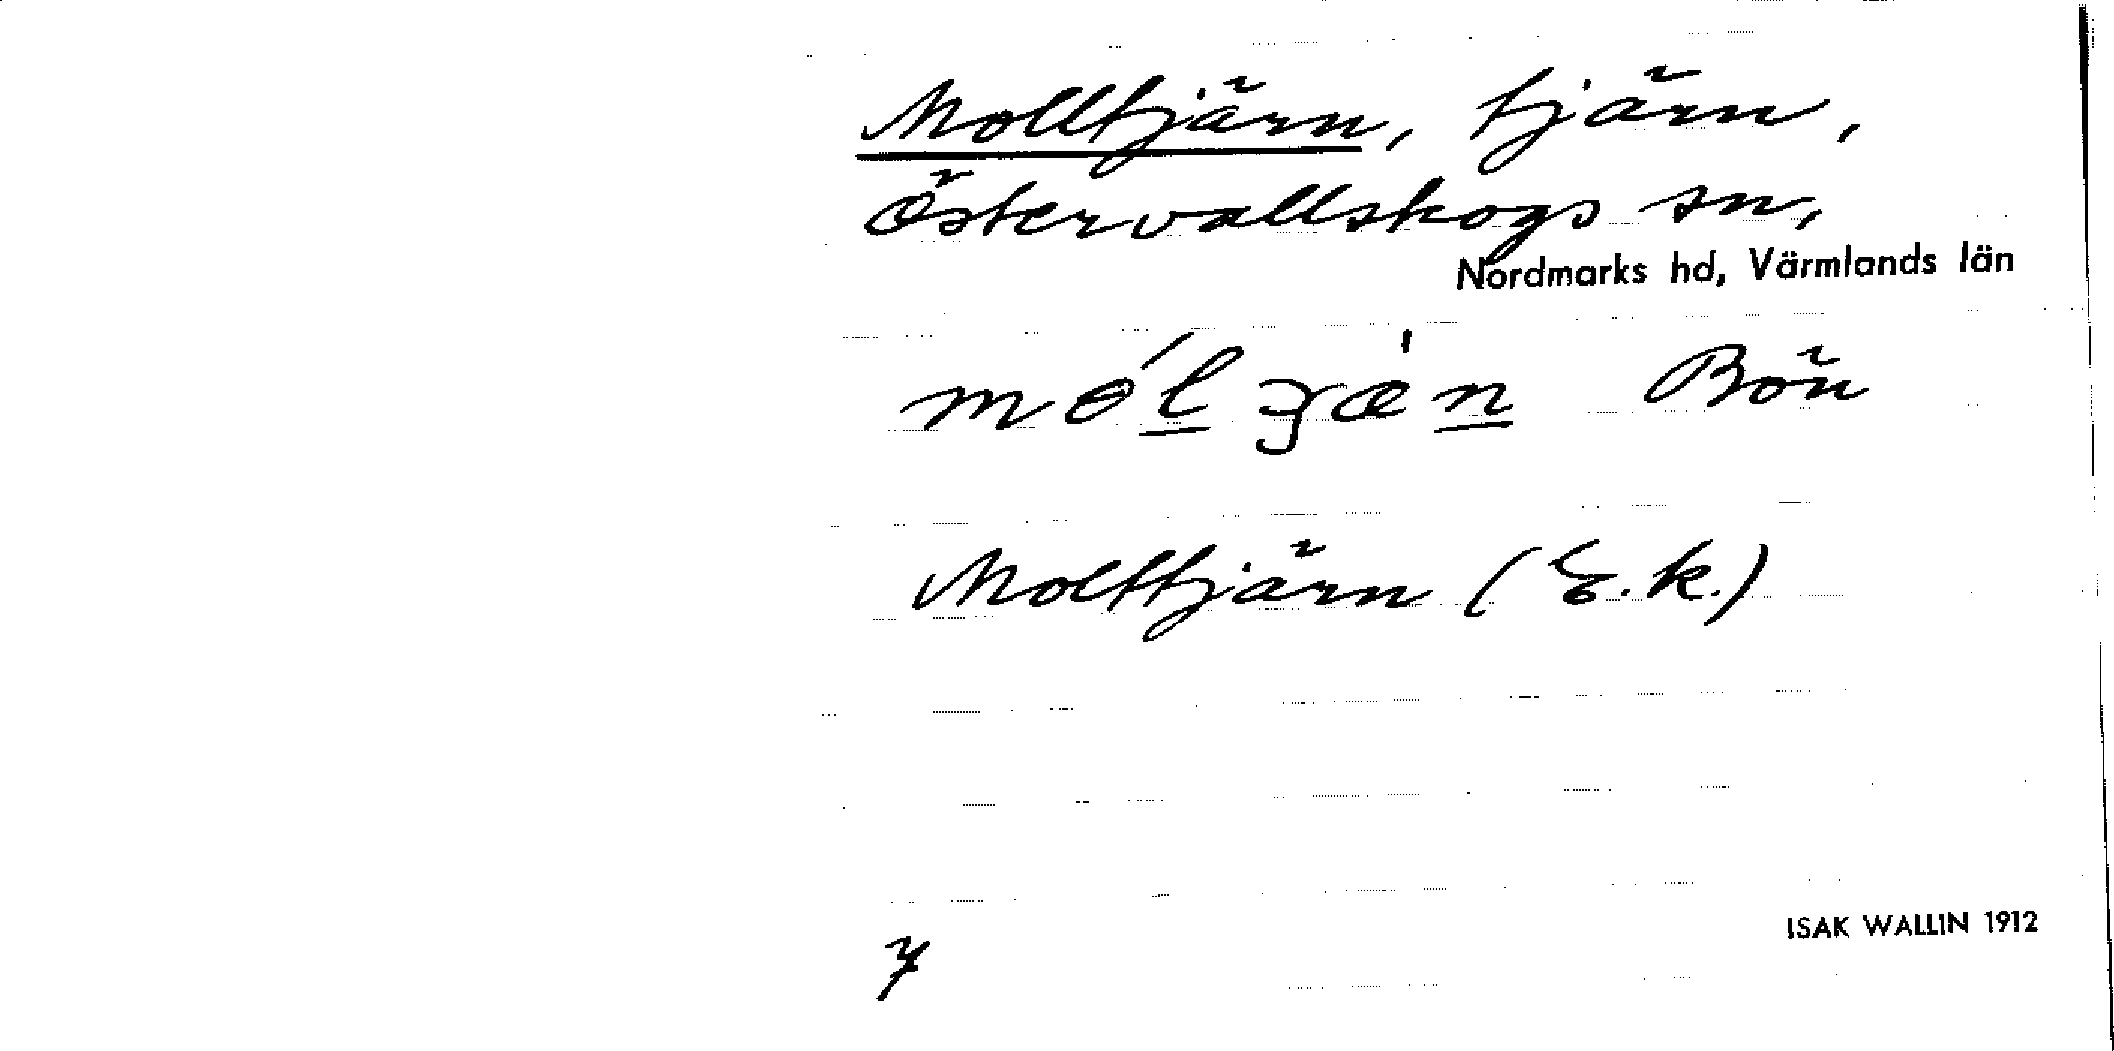 Molltjärn, tjärn,
Östervallskogs sn,
Nordmarks hd, Värmlands län
Bön
Molttjärn (E.k.)
7
ISAK WALLIN 1912